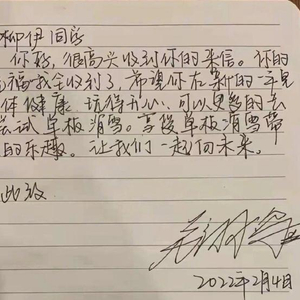 柳伊同学
你好，很高兴收到你的来信。你的
福我全收到了，希望你在新的一年里
体健康，玩得开心，可以勇敢的去
尝试单板滑雪。享受单板滑雪带
的乐趣。让我们一起向未来。
此致
2022年2月4日